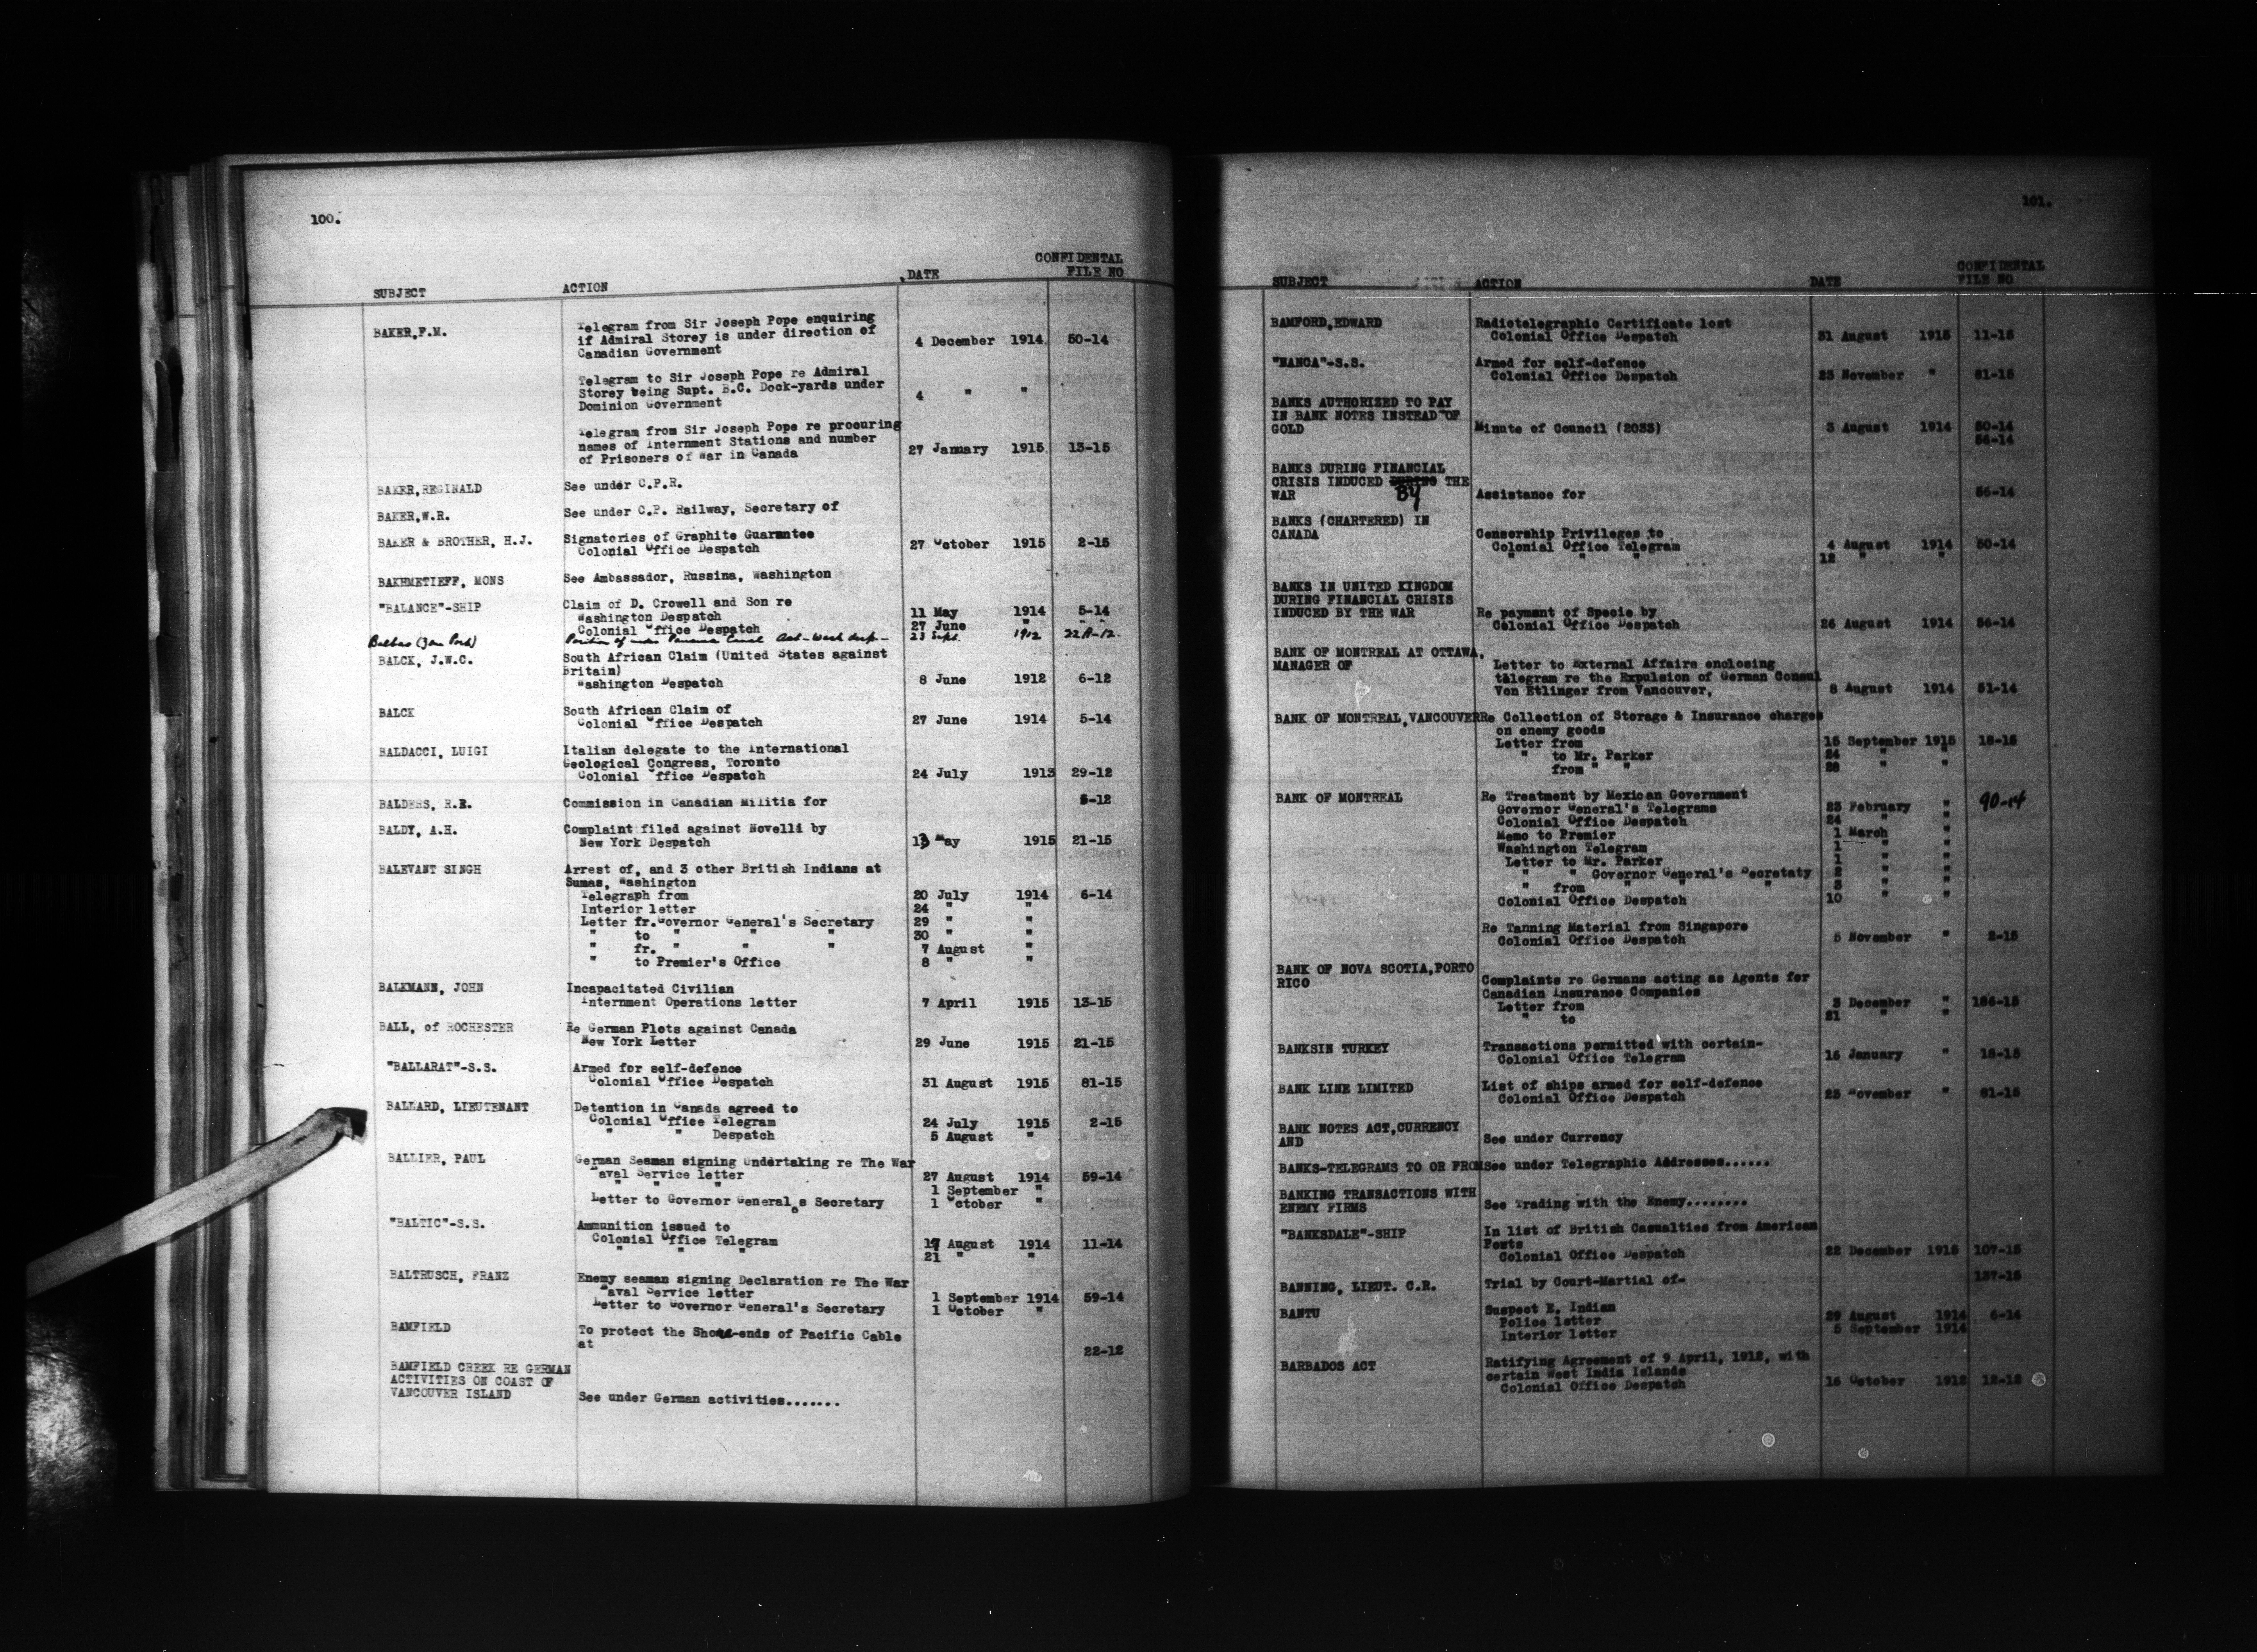 100.
SUBJECT ACTION DATE CONFIDENTAL FILE NO
BAKER,F.M. Telegram from Sir Joseph Pope enquiring
if Admiral Storey is under direction of 4 December 1914 50-14
Canadian Government
Telegram to Sir Joseph Pope re Admiral
Storey being Supt. B.C. Dock-yards under 4 " "
Dominion Government
Telegram from Sir Joseph Pope re procuring
names of Internment Stations and number 27 January 1915 13-15
of Prisoners of War in Canada
BAKER,REGINALD See under C.P.R.
BAKER,W.R. See under C.P. Railway, Secretary of
BAKER & BROTHER, H.J. Signatories of Graphite Guarantee
Colonial Office Despatch 27 October 1915 2-15
BAKHMETIEFF, MONS See Ambassador, Russina, Washington
"BALANCE"-SHIP Claim of D. Crowell and Son re
Washington Despatch 11 May 1914 5-14
Colonial Office Despatch 27 June " " "
Balboa Position of under Panama Canal Act - Wash desp- 23 Sept. 1912 22A-12.
BALCK, J.W.C. South African Claim (United States against
Britain)
Washington Despatch 8 June 1912 6-12
BALCK South African Claim of
Colonial Office Despatch 27 June 1914 5-14
BALDACCI, LUIGI Italian delegate to the International
Geological Congress, Toronto
Colonial Office Despatch 24 July 1913 29-12
BALDERS, R.R. Commission in Canadian Militia for 5-12
BALDY, A.H. Complaint filed against Novelli by
New York Despatch 13 May 1915 21-15
BALEVANT SINGH Arrest of, and 3 other British Indians at
Sumas, Washington
Telegraph from 20 July 1914 6-14
Interior letter 24 " "
Letter fr.Governor General's Secretary 29 " "
" to " " " 30 " "
" fr. " " " 7 August "
" to Premier's Office 8 " "
BALKMANN, JOHN Incapacitated Civilian
Internment Operations letter 7 April 1915 13-15
BALL, of ROCHESTER Re German Plots against Canada
New York Letter 29 June 1915 21-15
"BALLARAT"-S.S. Armed for self-defence
Colonial Office Despatch 31 August 1915 81-15
BALLARD, LIEUTENANT Detention in Canada agreed to
Colonial Office Telegram 24 July 1915 2-15
" " Despatch 5 August "
BALLIER, PAUL German Seaman signing Undertaking re The War
Naval Service letter 27 August 1914 59-14
" " " 1 September "
Letter to Governor General s Secretary 1 October "
"BALTIC"-S.S. Ammunition issued to
Colonial Office Telegram 17 August 1914 11-14
" " " 21 " "
BALTRUSCH, FRANZ Enemy seaman signing Declaration re The War
Naval Service letter 1 September 1914 59-14
Letter to Governor General's Secretary 1 October "
BAMFIELD To protect the Shore-ends of Pacific Cable
at 22-12
BAMFIELD CREEK RE GERMAN
ACTIVITIES ON COAST OF
VANCOUVER ISLAND See under German activities.......
101.
SUBJECT ACTION DATE CONFIDENTAL FILE NO
BAMFORD,EDWARD Radiotelegraphic Certificate lost
Colonial Office Despatch 31 August 1915 11-15
"NANCA"-S.S. Armed for self-defence
Colonial Office Despatch 23 November " 81-15
BANKS AUTHORIZED TO PAY
IN BANK NOTES INSTEAD OF
GOLD Minute of Council (2033) 3 August 1914 50-14
56-14
BANKS DURING FINANCIAL
CRISIS INDUCED DURING BY THE
WAR Assistance for 56-14
BANKS (CHARTERED) IN
CANADA Censorship Privileges to
Colonial Office Telegram 4 August 1914 50-14
" " " 12 " "
BANKS IN UNITED KINGDOM
DURING FINANCIAL CRISIS
INDUCED BY THE WAR Re payment of Specie by
Colonial Office Despatch 26 August 1914 56-14
BANK OF MONTREAL AT OTTAWA,
MANAGER OF Letter to External Affairs enclosing
telegram re the Expulsion of German Consul
Von Etlinger from Vancouver, 8 August 1914 51-14
BANK OF MONTREAL,VANCOUVER Re Collection of Storage & Insurance charges
on enemy goods
Letter from 15 September 1915 18-15
" to Mr. Parker 24 " "
from " " 28 " "
BANK OF MONTREAL Re Treatment by Mexican Government 90-14
Governor General's Telegrams 23 February "
Colonial Office Despatch 24 " "
Memo to Premier 1 March "
Washington Telegram 1 " "
Letter to Mr. Parker 1 " "
" " Governor General's Secretaty 2 " "
" from " " " 3 " "
Colonial Office Despatch 10 " "
Re Tanning Material from Singapore
Colonial Office Despatch 5 November " 2-15
BANK OF NOVA SCOTIA,PORTO
RICO Complaints re Germans acting as Agents for
Canadian Insurance Companies
Letter from 3 December " 186-15
" to 21 " "
BANKSIN TURKEY Transactions permitted with certain-
Colonial Office Telegram 16 January " 18-15
BANK LINE LIMITED List of ships armed for self-defence
Colonial Office Despatch 23 November " 81-15
BANK NOTES ACT,CURRENCY
AND See under Currency
BANKS-TELEGRAMS TO OR FROM See under Telegraphic Addresses......
BANKING TRANSACTIONS WITH
ENEMY FIRMS See Trading with the Enemy........
"BANKSDALE"-SHIP In list of British Casualties from American
Ports
Colonial Office Despatch 22 December 1915 107-15
BANNING, LIEUT. C.R. Trial by Court-Martial of- 137-15
BANTU Suspect E. Indian
Police letter 29 August 1914 6-14
Interior letter 5 September 1914
BARBADOS ACT Ratifying Agreement of 9 April, 1912, with
certain West India Islands
Colonial Office Despatch 16 October 1912 12-12